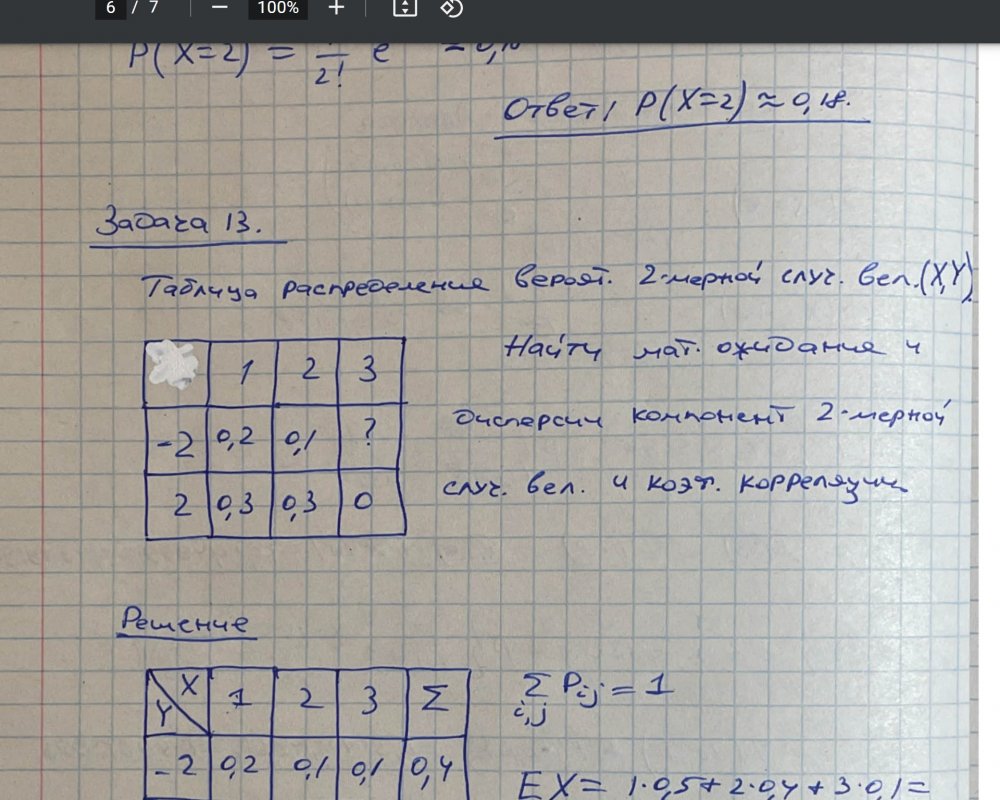 6 / 7 — 100% +
P(X=2) =
2! e
Ответ: P(X=2) ≈ 0,18.
Задача 13.
Таблица распределения вероят. 2-мерной случ. вел.(X,Y).
Найти мат. ожидания и
дисперсии компонент 2-мерной
случ. вел. и коэф. корреляции
1 2 3
-2 0,2 0,1 ?
2 0,3 0,3 0
Решение
X Y 1 2 3 Σ
-2 0,2 0,1 0,1 0,4
Σ Pij = 1
i,j
EX = 1·0,5+2·0,4+3·0,1=